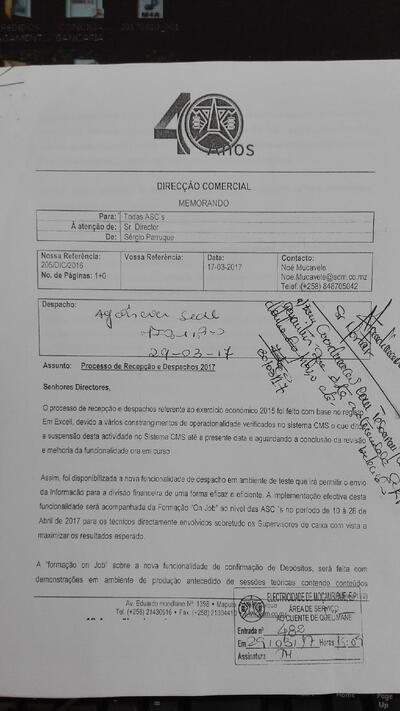 M4A
40 Anos
DIRECÇÃO COMERCIAL
MEMORANDO
Para: Todas ASC`s
À atenção de: Sr. Director
De: Sérgio Parruque
Nossa Referência: 205/DIC/2016
No. de Páginas: 1+0
Vossa Referência:
Data: 17-03-2017
Contacto: Noé Mucavele
Noe.Mucavele@edm.co.mz
Telef. (+258) 848705042
Despacho:
29-03-17
Assunto: Processo de Recepção e Despachos 2017
Senhores Directores,
O processo de recepção e despachos referente ao exercício económico 2015 foi feito com base no registo
Em Excell, devido a vários constrangimentos de operacionalidade verificados no sistema CMS o que ditou
a suspensão desta actividade no Sistema CMS até a presente data e aguardando a conclusão da revisão
e melhoria da funcionalidade ora em curso
Assim, foi disponibilizada a nova funcionalidade de despacho em ambiente de teste que irá permitir o envio
da Informação para a divisão financeira de uma forma eficaz e eficiente. A implementação efectiva desta
funcionalidade será acompanhada da Formação “On Job” ao nível das ASC `s no período de 10 à 28 de
Abril de 2017 para os técnicos directamente envolvidos sobretudo os Supervisores de caixa com vista a
maximizar os resultados esperado.
A “formação on Job” sobre a nova funcionalidade de confirmação de Depósitos, será feita com
demonstrações em ambiente de produção antecedido de sessões teóricas contendo conteúdos
Av. Eduardo mondlane Nº 1398 • Maputo
Tel. (+258) 21430516 • Fax. (+258)
ELECTRICIDADE DE MOÇAMBIQUE, E.P.
ÁREA DE SERVIÇO
AO CLIENTE DE QUELIMANE
Entrada nº 482
Em 29/03/17 Horas
Assinatura
Home
Page
Up